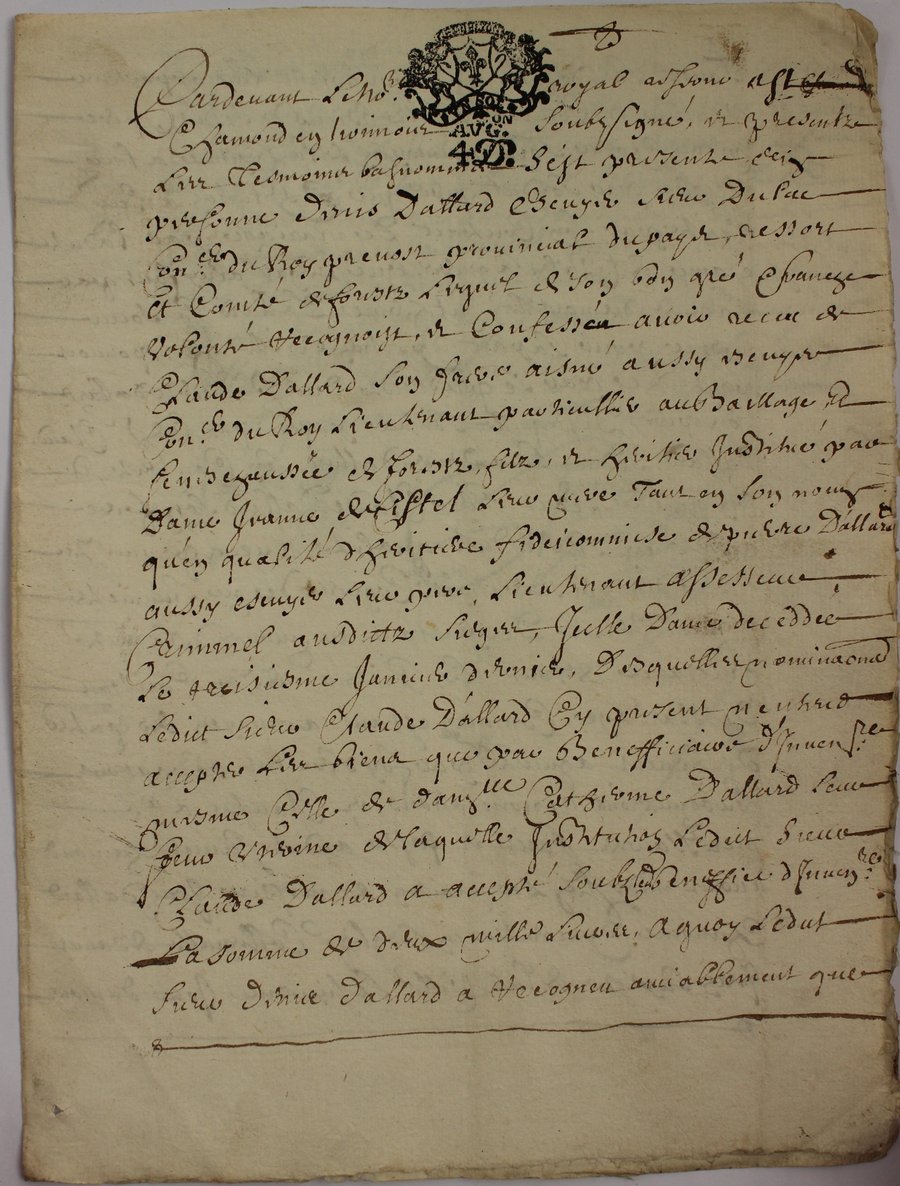 Pardevant le No.re royal a St
Chamond en Lionnois soubsigné, et presentz
les Tesmoins bas nommés s'est presenté en
personne Denis Dallard Escuyer sieur Dulac
Con.er du Roy prevost provincial du pays, ressort
et Comté de forestz Lequel de son bon gré franche
volonté recognoist, et Confesse avoir receu de
Claude Dallard son frere aisné aussy escuyer
Con.er du Roy Lieutenant particullier au Baillage et
senechaussée de forestz, filz, et heritier Institué par
Dame Jeanne de Leur mere Tant en son nom
qu'en qualité d'heritiere fideicommise de pierre Dallard
aussy escuyer leur pere, Lieutenant assesseur
Criminel ausdictz sieges, Icelle Dame deceddée
le treisiesme Janvier dernier, Desquelles nominaons
Ledict sieur Claude Dallard Cy present n'entend
accepter les biens que par Benefficiaire d'Inven.re
mesme Celle de dam.lle Catherine Dallard leur
soeur de laquelle Institution Ledict sieur
Claude Dallard a accepté soubz beneffice d'Inven.re
La somme de deux mille Livres, a quoy Ledict
sieur Denis Dallard a recogneu amiablement que
AVG.
4D.